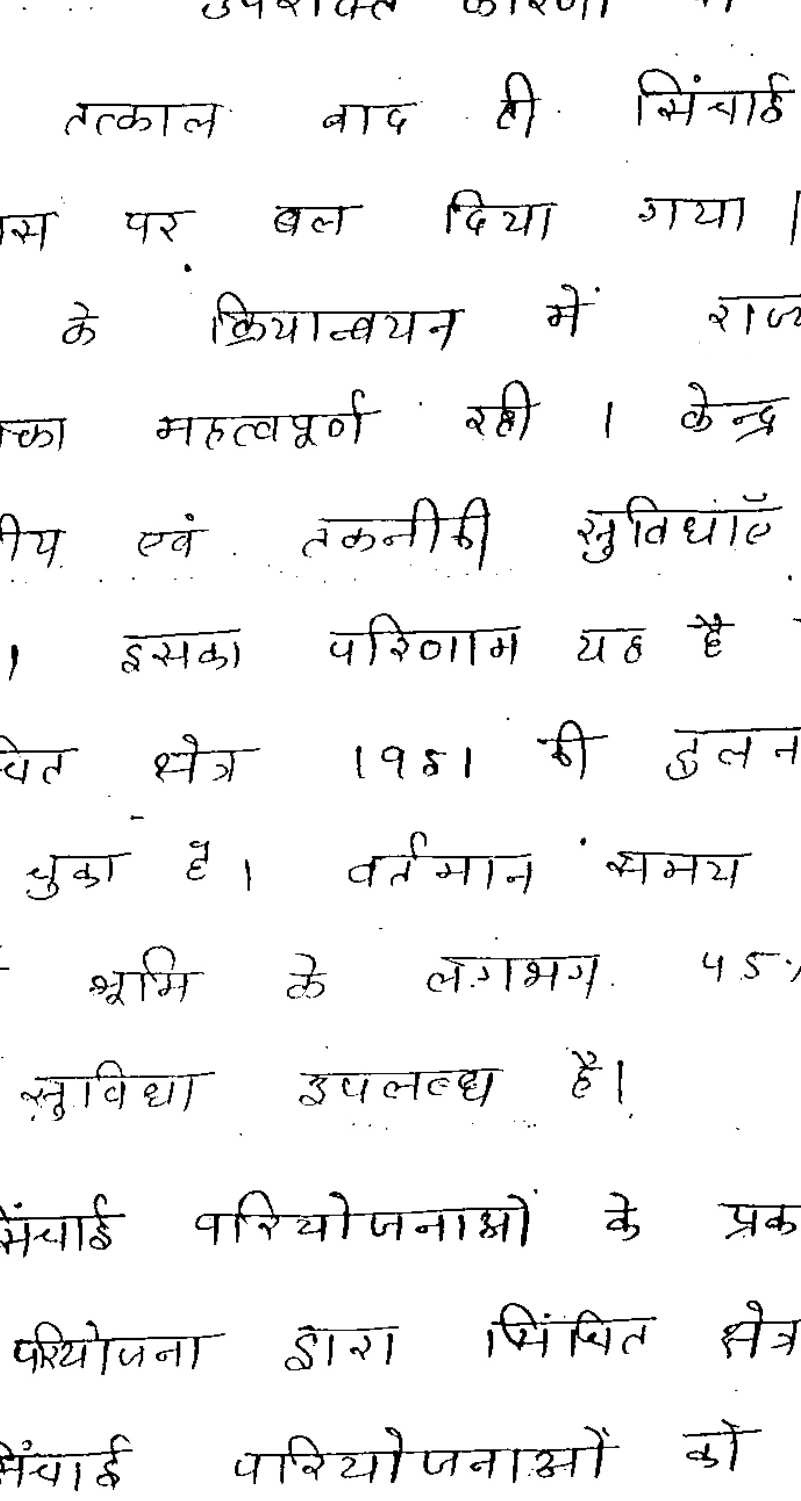 उपरोक्त कारणों
तत्काल बाद ही सिंचाई
पर बल दिया गया |
के क्रियान्वयन में राज्य
महत्वपूर्ण रही । केन्द्र
एवं तकनीकी सुविधाएँ
। इसका परिणाम यह है
क्षेत्र 1951 की तुलन
चुका है । वर्तमान समय
भूमि के लगभग 45%
सुविधा उपलब्ध है।
सिंचाई परियोजनाओं के प्रक
परियोजना द्वारा सिंचित क्षेत्र
सिंचाई परियोजनाओं को